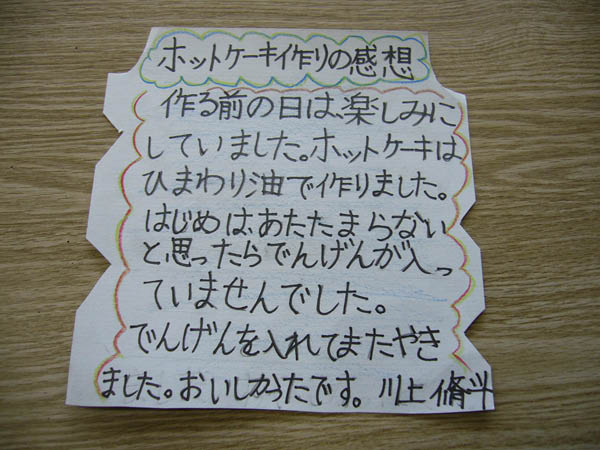 ホットケーキ作りの感想
作る前の日は、楽しみに
していました。ホットケーキは
ひまわり油で作りました。
はじめは、あたたまらない
と思ったらでんげんが入っ
ていませんでした。
でんげんを入れてまたやき
ました。おいしかたです。川上脩斗